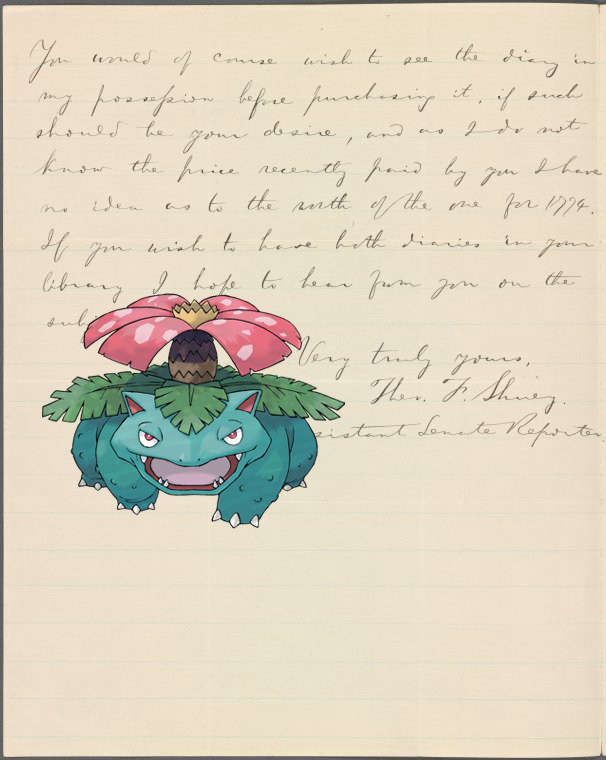 You would of course wish to see the diary in
my possession before purchasing it, if such
should be your desire, and as I do not
know the price recently paid by you I have
no idea as to the worth of the one for 1774.
If you wish to have both diaries in your
library I hope to hear from you on the
Very truly yours,
Theo. F. Shuey.
Senate Reporter.